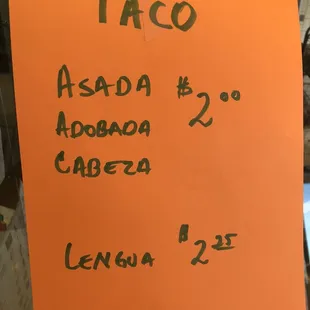 TACO
ASADA $2.00
ADOBADA
CABEZA
LENGUA $2.25